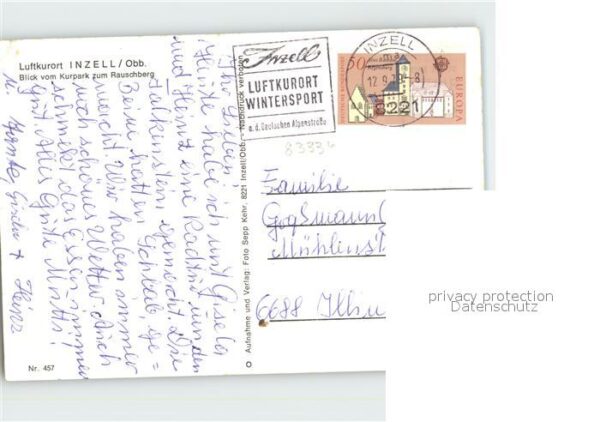 Luftkurort INZELL/Obb.
Blick vom Kurpark zum Rauschberg
Ihr Lieben!
Heute habe ich und Gisela
und Heinz eine Radtour um den
Falkenstein gemacht. Die
Beine hatten
gemacht. Wir haben immer
noch schönes Wetter. Auch
schmeckt das Essen immer
gut. Alles Gute Mutti!
u. Gisela + Heinz
Nr. 457
O Aufnahme und Verlag: Foto Sepp Kehr, 8221 Inzell/Obb. Nachdruck verboten
Inzell
LUFTKURORT
WINTERSPORT
a. d. Deutschen Alpenstraße
INZELL
12.9.79-8
8221
50
DEUTSCHE BUNDESPOST
EUROPA
83334
Familie
Mühlenst
6688
privacy protection
Datenschutz